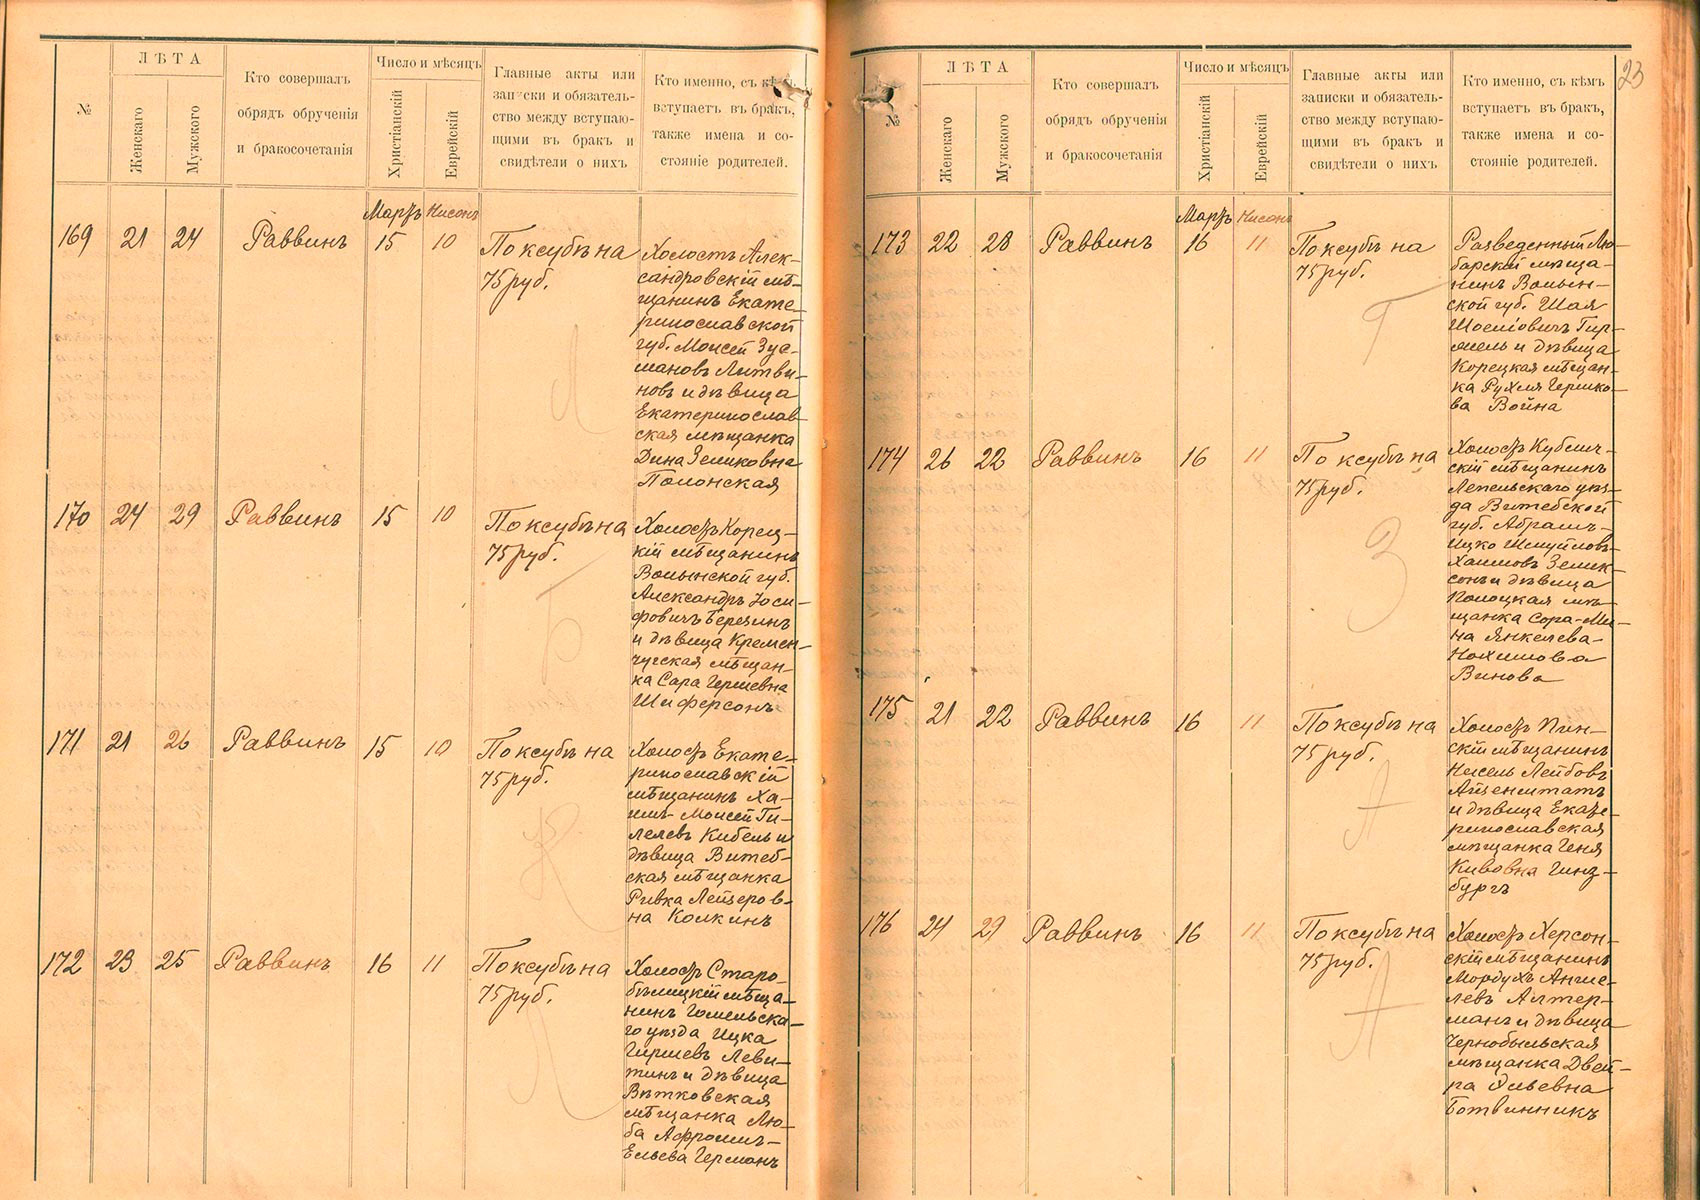 №
ЛѢТА
Женскаго
Мужского
Кто совершалъ
обрядъ обрученія
и бракосочетанія
Число и мѣсяцъ
Христіанскій
Еврейскій
Главные акты или
записки и обязатель-
ство между вступаю-
щими въ бракъ и
свидѣтели о нихъ
Кто именно, съ кѣмъ
вступаетъ въ бракъ,
также имена и со-
стояніе родителей.
Мартъ Нисонъ
169 21 24 Раввинъ 15 10 По ксубѣ на
75 руб.
Холостъ Алек-
сандровскій мѣ-
щанинъ Екате-
ринославской
губ. Моисей Зус-
мановъ Литви-
новъ и дѣвица
Екатеринослав-
ская мѣщанка
Дина Зеликовна
Полонская
Л
170 24 29 Раввинъ 15 10 По ксубѣ на
75 руб.
Холостъ Корец-
кій мѣщанинъ
Волынской губ.
Александръ Іоси-
фовичъ Березинъ
и дѣвица Кремен-
чугская мѣщан-
ка Сара Гершевна
Шиферсонъ
Б
171 21 26 Раввинъ 15 10 По ксубѣ на
75 руб.
Холостъ Екате-
ринославскій
мѣщанинъ Ха-
имъ-Моисей Ги-
лелевъ Кибель и
дѣвица Витеб-
ская мѣщанка
Ривка Лейзеров-
на Колкинъ
К
172 23 25 Раввинъ 16 11 По ксубѣ на
75 руб.
Холостъ Старо-
бѣлицкій мѣща-
нинъ Гомельска-
го уѣзда Ицка
Гиршевъ Леви-
тинъ и дѣвица
Вѣтковская
мѣщанка Лю-
ба Афроимъ-
Ельева Германъ
Л
23
№
ЛѢТА
Женскаго
Мужского
Кто совершалъ
обрядъ обрученія
и бракосочетанія
Число и мѣсяцъ
Христіанскій
Еврейскій
Главные акты или
записки и обязатель-
ство между вступаю-
щими въ бракъ и
свидѣтели о нихъ
Кто именно, съ кѣмъ
вступаетъ въ бракъ,
также имена и со-
стояніе родителей.
Мартъ Нисонъ
173 22 28 Раввинъ 16 11 По ксубѣ на
75 руб.
Разведенный Лю-
барскій мѣща-
нинъ Волын-
ской губ. Шая
Шоеліовичъ Гир-
мель и дѣвица
Корецкая мѣщан-
ка Рухля Гершко-
ва Война
Г
174 26 22 Раввинъ 16 11 По ксубѣ на
75 руб.
Холостъ Кублич-
скій мѣщанинъ
Лепельскаго уѣз-
да Витебской
губ. Абрамъ-
Ицко Шмуйловъ-
Хаимовъ Зелик-
сонъ и дѣвица
Полоцкая мѣ-
щанка Сора-Ми-
на Янкелева-
Нохимова
Винова
З
175 21 22 Раввинъ 16 11 По ксубѣ на
75 руб.
Холостъ Пин-
скій мѣщанинъ
Нисель Лейбовъ
Айзенштатъ
и дѣвица Екате-
ринославская
мѣщанка Геня
Кивовна Гинз-
бургъ
А
176 24 29 Раввинъ 16 11 По ксубѣ на
75 руб.
Холостъ Херсон-
скій мѣщанинъ
Мордухъ Анше-
левъ Алтер-
манъ и дѣвица
Чернобыльская
мѣщанка Двей-
ра Эльевна
Ботвинникъ
А